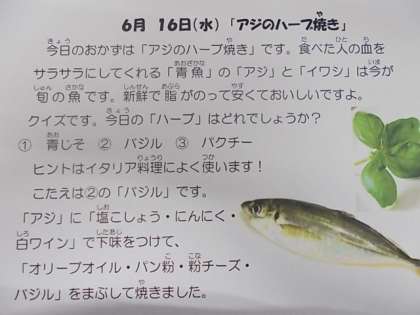 6月 16日(水)「アジのハーブ焼き」
今日のおかずは「アジのハーブ焼き」です。食べた人の血を
サラサラにしてくれる「青魚」の「アジ」と「イワシ」は今が
旬の魚です。新鮮で脂がのって安くておいしいですよ。
クイズです。今日の「ハーブ」はどれでしょうか?
① 青じそ ② バジル ③ パクチー
ヒントはイタリア料理によく使います!
こたえは②の「バジル」です。
「アジ」に「塩こしょう・にんにく・
白ワイン」で下味をつけて、
「オリーブオイル・パン粉・粉チーズ・
バジル」をまぶして焼きました。